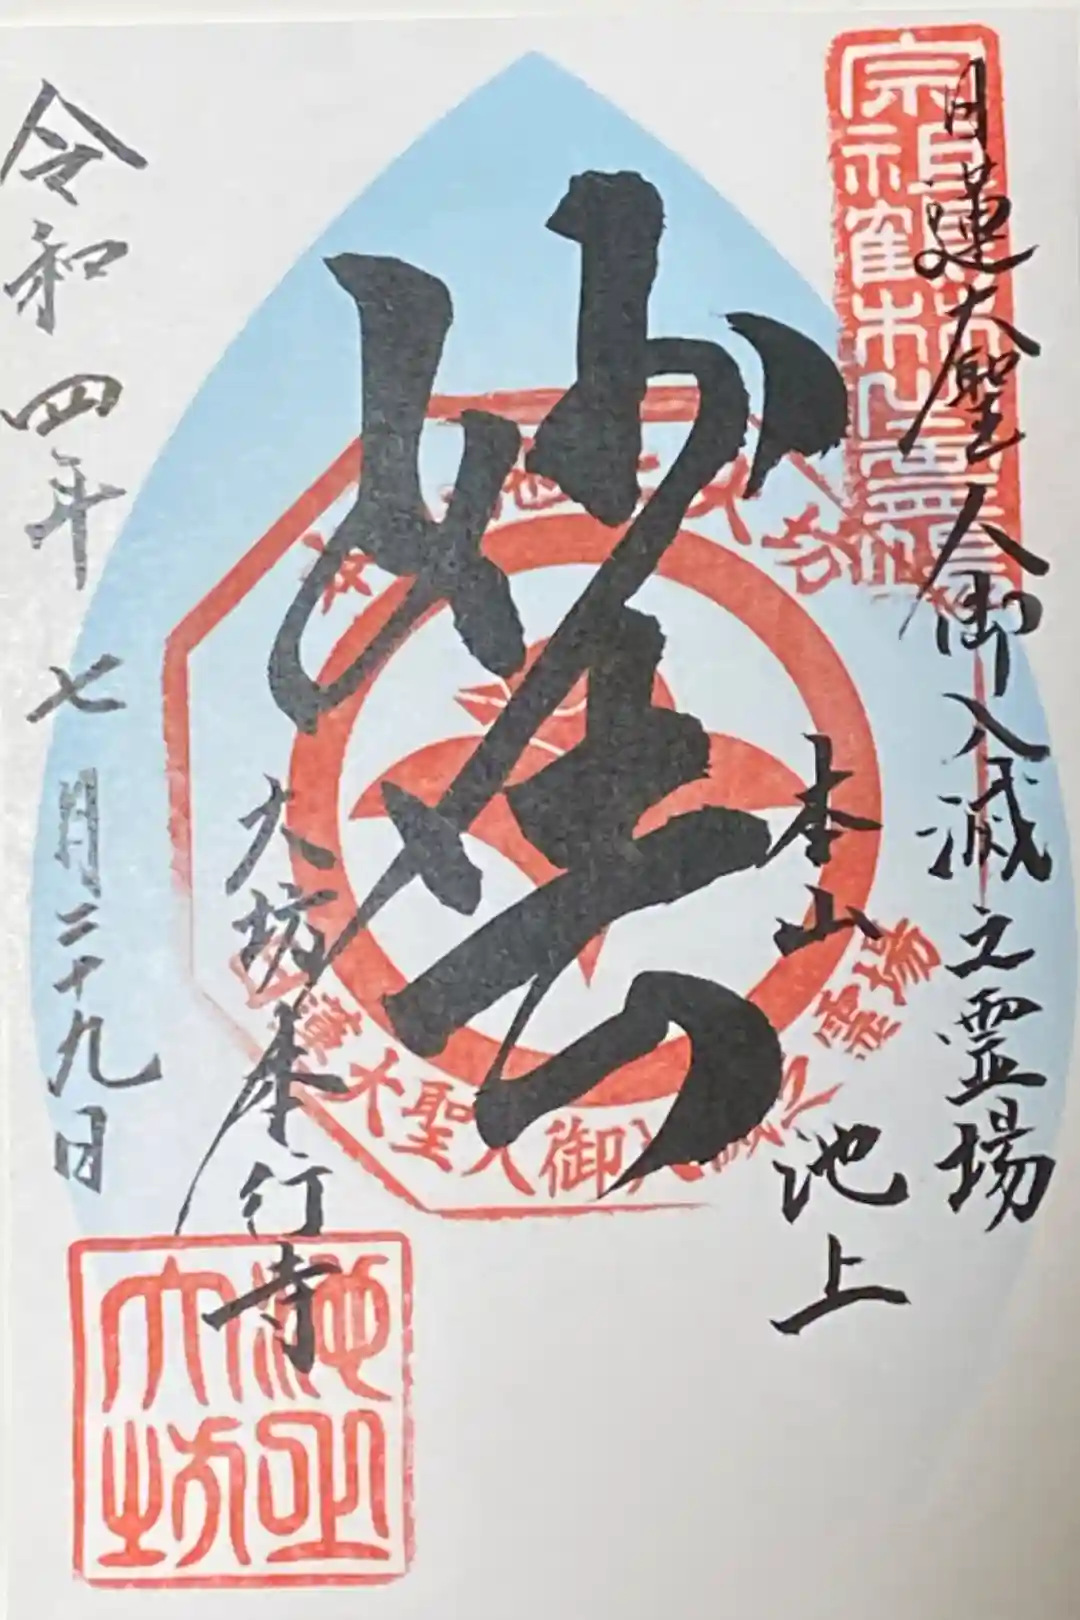 日蓮大聖人御入滅之霊場
本山 池上
妙法
大坊本行寺
令和四年七月二十九日
大坊
日蓮大聖人御入滅 霊場
池上
大坊